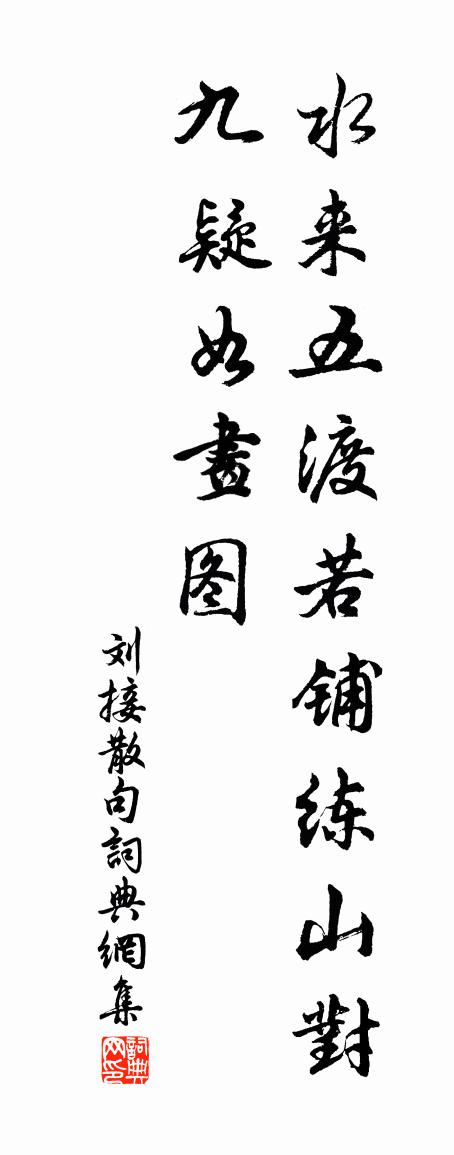 水来五渡若铺练山對
九疑如畫图
刘接散句詞典網集
詞典网印